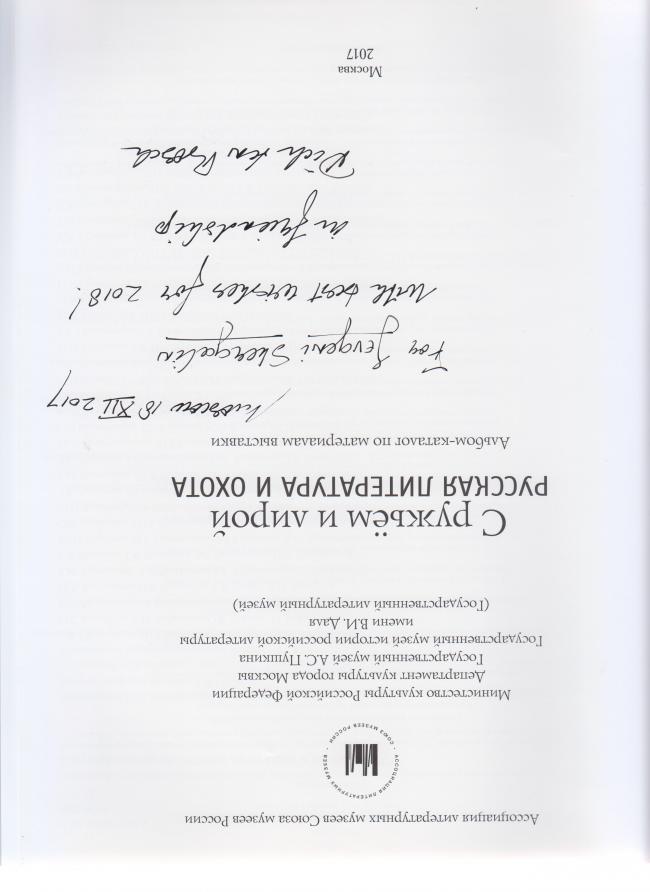 Ассоциация литературных музеев Союза музеев России
АССОЦИАЦИЯ ЛИТЕРАТУРНЫХ МУЗЕЕВ · СОЮЗ МУЗЕЕВ РОССИИ ·
Министество культуры Российской Федерации
Департамент культуры города Москвы
Государственный музей А.С. Пушкина
Государственный музей истории российской литературы
имени В.И. Даля
(Государственный литературный музей)
С ружьём и лирой
РУССКАЯ ЛИТЕРАТУРА И ОХОТА
Альбом-каталог по материалам выставки
Moscow 18 XII 2017
For Jevgeni
With best wishes for 2018!
in friendship
Москва
2017